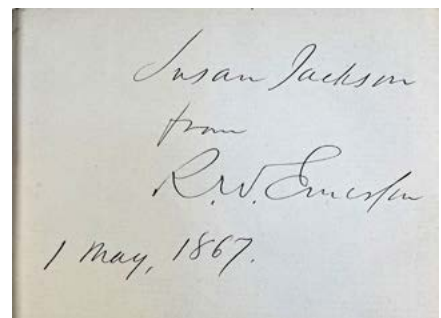 Susan Jackson
from
R. W. Emerson
1 May, 1867.